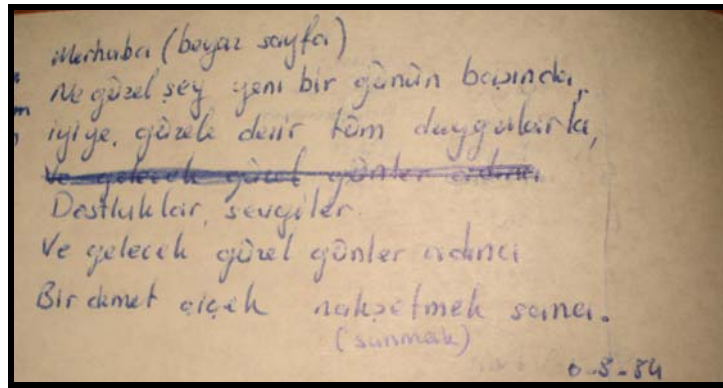 Merhaba (beyaz sayfa)
Ne güzel şey yeni bir günün başında,
iyiye, güzele dair tüm duygularla,
Ve gelecek güzel günler adına
Dostluklar, sevgiler
Ve gelecek güzel günler adına
Bir demet çiçek nakşetmek sana.
(sunmak)